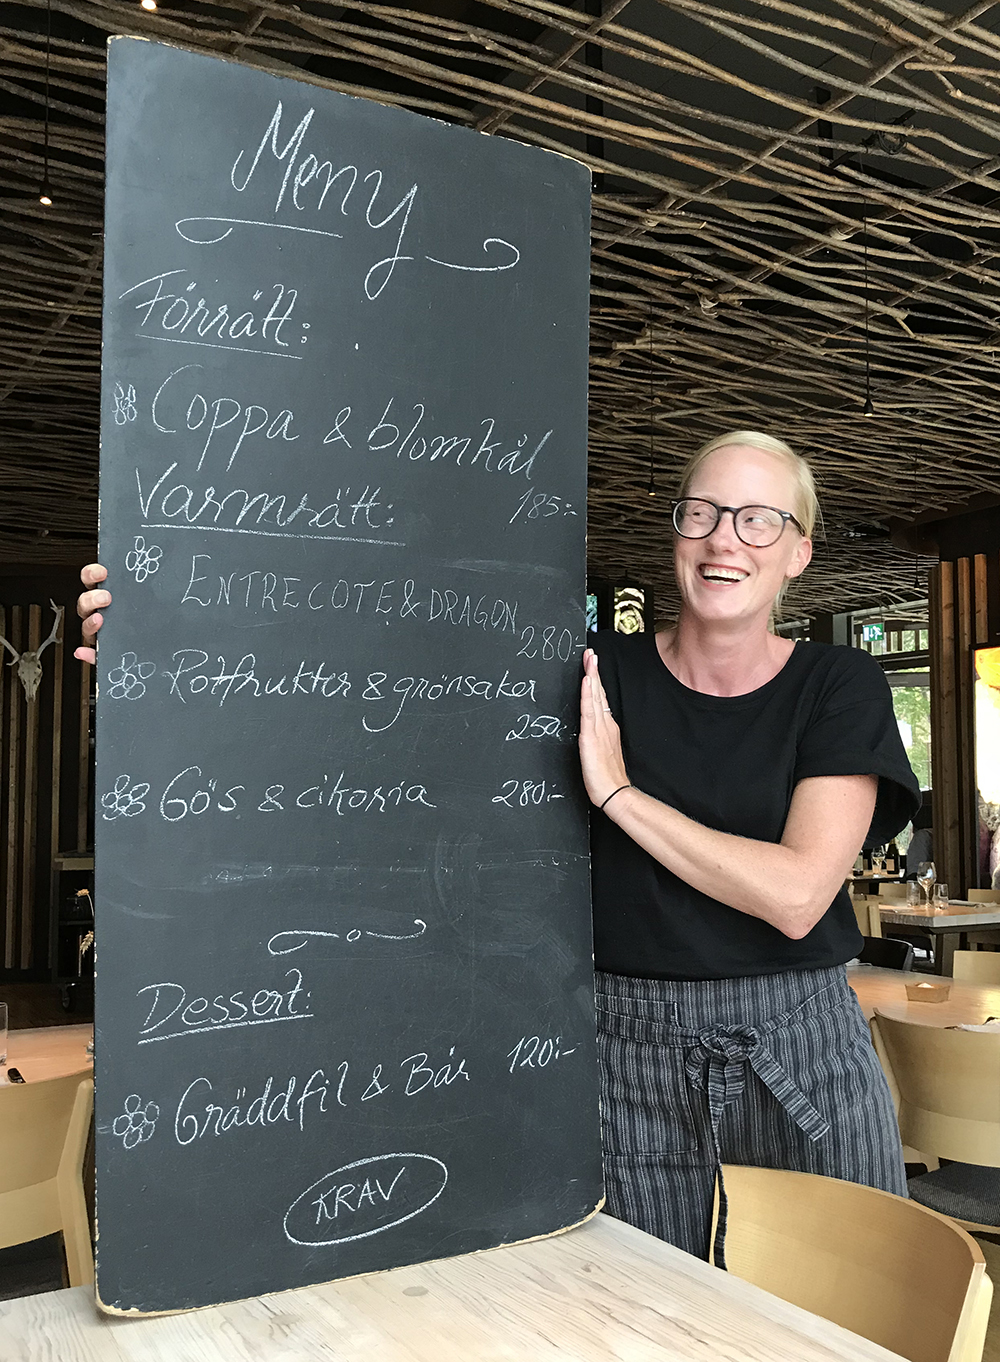 Meny
Förrätt:
Coppa & blomkål
185:-
Varmrätt:
ENTRECOTE & DRAGON
280:-
Rotfrukter & grönsaker
250:-
Gös & cikoria 280:-
Dessert:
Gräddfil & Bär 120:-
KRAV